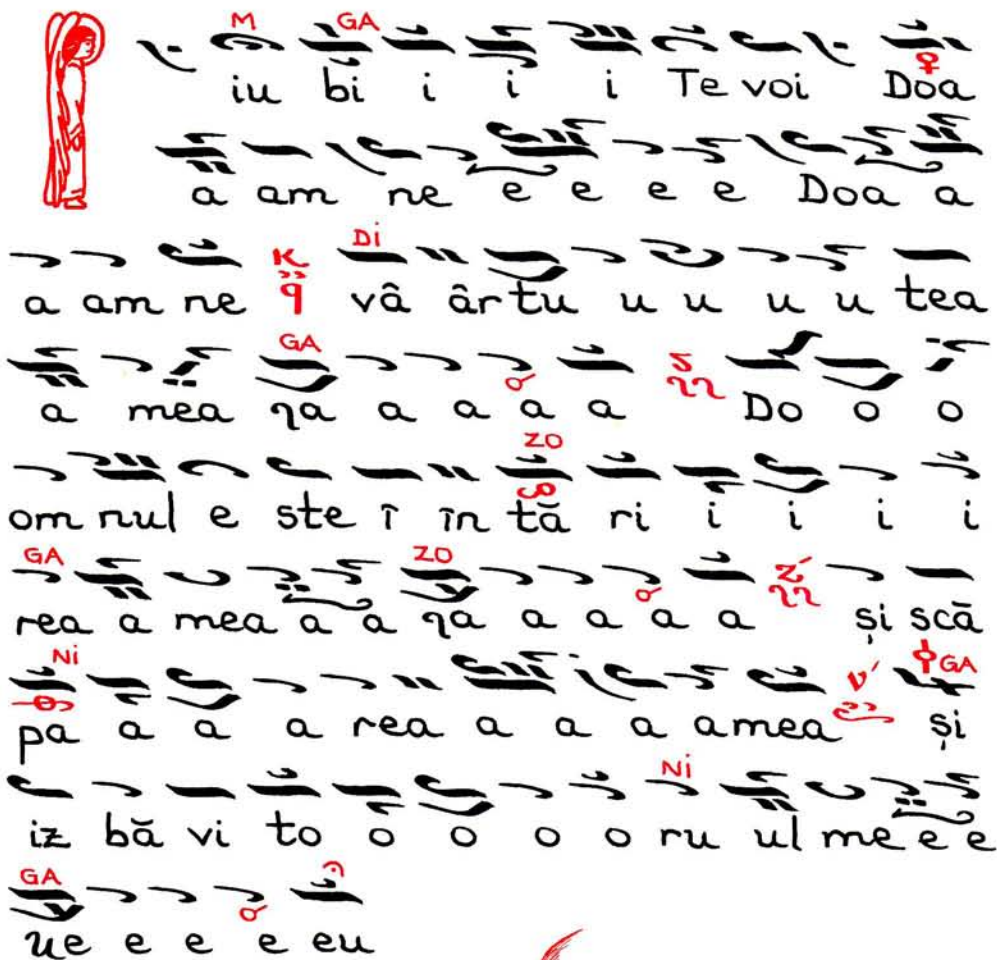 M GA
iu bi i i i Te voi Doa
a am ne e e e e Doa a
Di
a am ne vâ âr tu u u u u tea
GA
a mea ŋa a a a a Do o o
ZO
om nul e ste î în tă ri i i i i
GA ZO
rea a mea a a ŋa a a a a și scă
Ni GA
pa a a a rea a a a a mea și
Ni
iz bă vi to o o o o ru ul me e e
GA
ue e e e eu